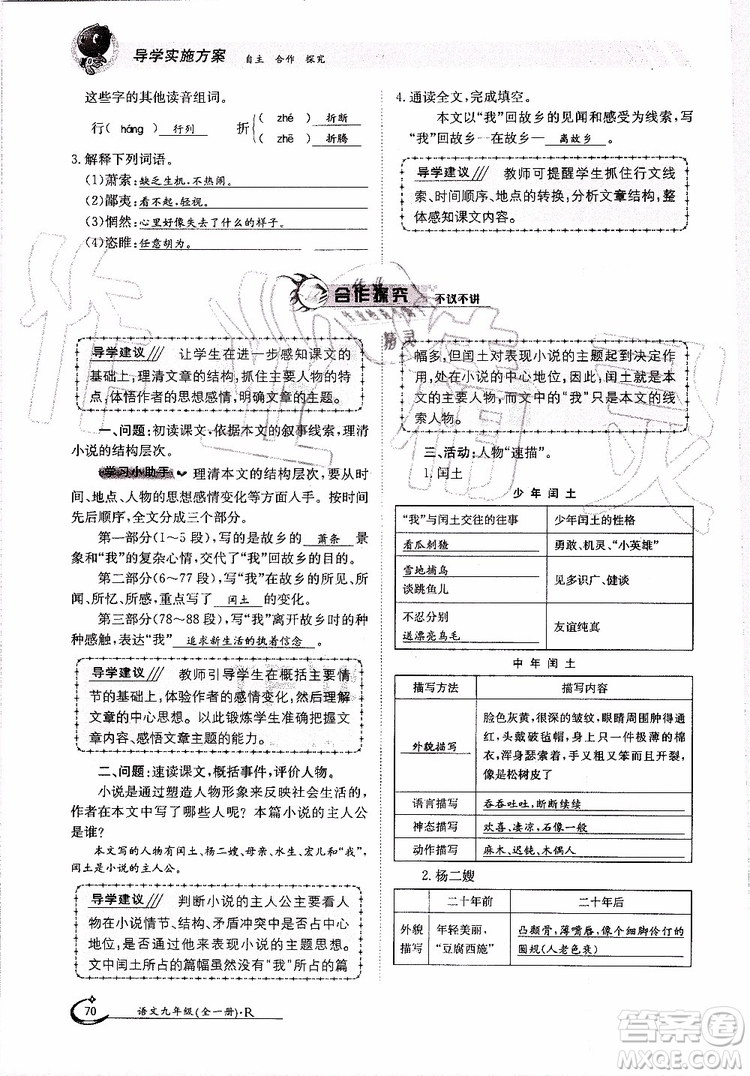 导学实施方案 自主 合作 探究
这些字的其他读音组词。
行( háng ) 行列 折 ( zhé ) 折断
( zhē ) 折腾
3. 解释下列词语。
(1)萧索:缺乏生机,不热闹。
(2)鄙夷:看不起,轻视。
(3)惘然:心里好像失去了什么的样子。
(4)恣睢:任意胡为。
4. 通读全文,完成填空。
本文以“我”回故乡的见闻和感受为线索,写“我”回故乡—在故乡— 离故乡 。
导学建议 教师可提醒学生抓住行文线
索、时间顺序、地点的转换,分析文章结构,整
体感知课文内容。
合作探究 不议不讲
导学建议 让学生在进一步感知课文的
基础上,理清文章的结构,抓住主要人物的特
点,体悟作者的思想感情,明确文章的主题。
一、问题:初读课文,依据本文的叙事线索,理清
小说的结构层次。
学习小助手 理清本文的结构层次,要从时
间、地点、人物的思想感情变化等方面入手。按时间
先后顺序,全文分成三个部分。
第一部分(1～5段),写的是故乡的 萧条 景
象和“我”的复杂心情,交代了“我”回故乡的目的。
第二部分(6～77段),写“我”在故乡的所见、所
闻、所忆、所感,重点写了 闰土 的变化。
第三部分(78～88段),写“我”离开故乡时的种
种感触,表达“我” 追求新生活的执着信念 。
导学建议 教师引导学生在概括主要情
节的基础上,体验作者的感情变化,从而理解
文章的中心思想。以此锻炼学生的整体阅读
文章、感悟文章主题的能力。
二、问题:速读课文,概括事件,评价人物。
小说是通过塑造人物形象来反映社会生活的,
作者在本文中写了哪些人呢?本篇小说的主人公
是谁?
本文写的人物有闰土、杨二嫂、母亲、水生、宏儿和“我”,
闰土是小说的主人公。
导学建议 判断小说的主人公主要看人
物在小说情节、结构、矛盾冲突中是否占中心
地位,是否直接表现了小说的主题思想。本
文中闰土所占的篇幅虽然没有“我”所占的篇
幅多,但闰土对表现小说的主题起到决定作
用,在处于小说的中心地位,因此,闰土是本
文的主要人物,而文中“我”只是本文的线
索人物。
三、活动:人物“速描”。
1. 闰土
少年闰土
“我”与闰土交往的往事 少年闰土的性格
看瓜刺猹 勇敢、机灵、“小英雄”
雪地捕鸟
谈跳鱼儿 见多识广、健谈
不忍分别
送漂亮鸟毛 友谊纯真
中年闰土
描写方法 描写内容
外貌描写 脸色灰黄,很深的皱纹,眼睛周围肿得通红,头戴破毡帽,身上一件极薄的棉衣,浑身瑟索着,手又粗又笨而且开裂,像是松树皮了
语言描写 吞吞吐吐,断断续续
神态描写 欢喜、凄凉,石像一般
动作描写 麻木、迟钝、不太灵活
2. 杨二嫂
二十年前 二十年后
外貌描写 年轻美丽,“豆腐西施” 凸颧骨,薄嘴唇,像个细脚伶仃的圆规(人老色衰)
70 语文九年级(全一册)·R
作业精灵
答案圈
MXQE.COM